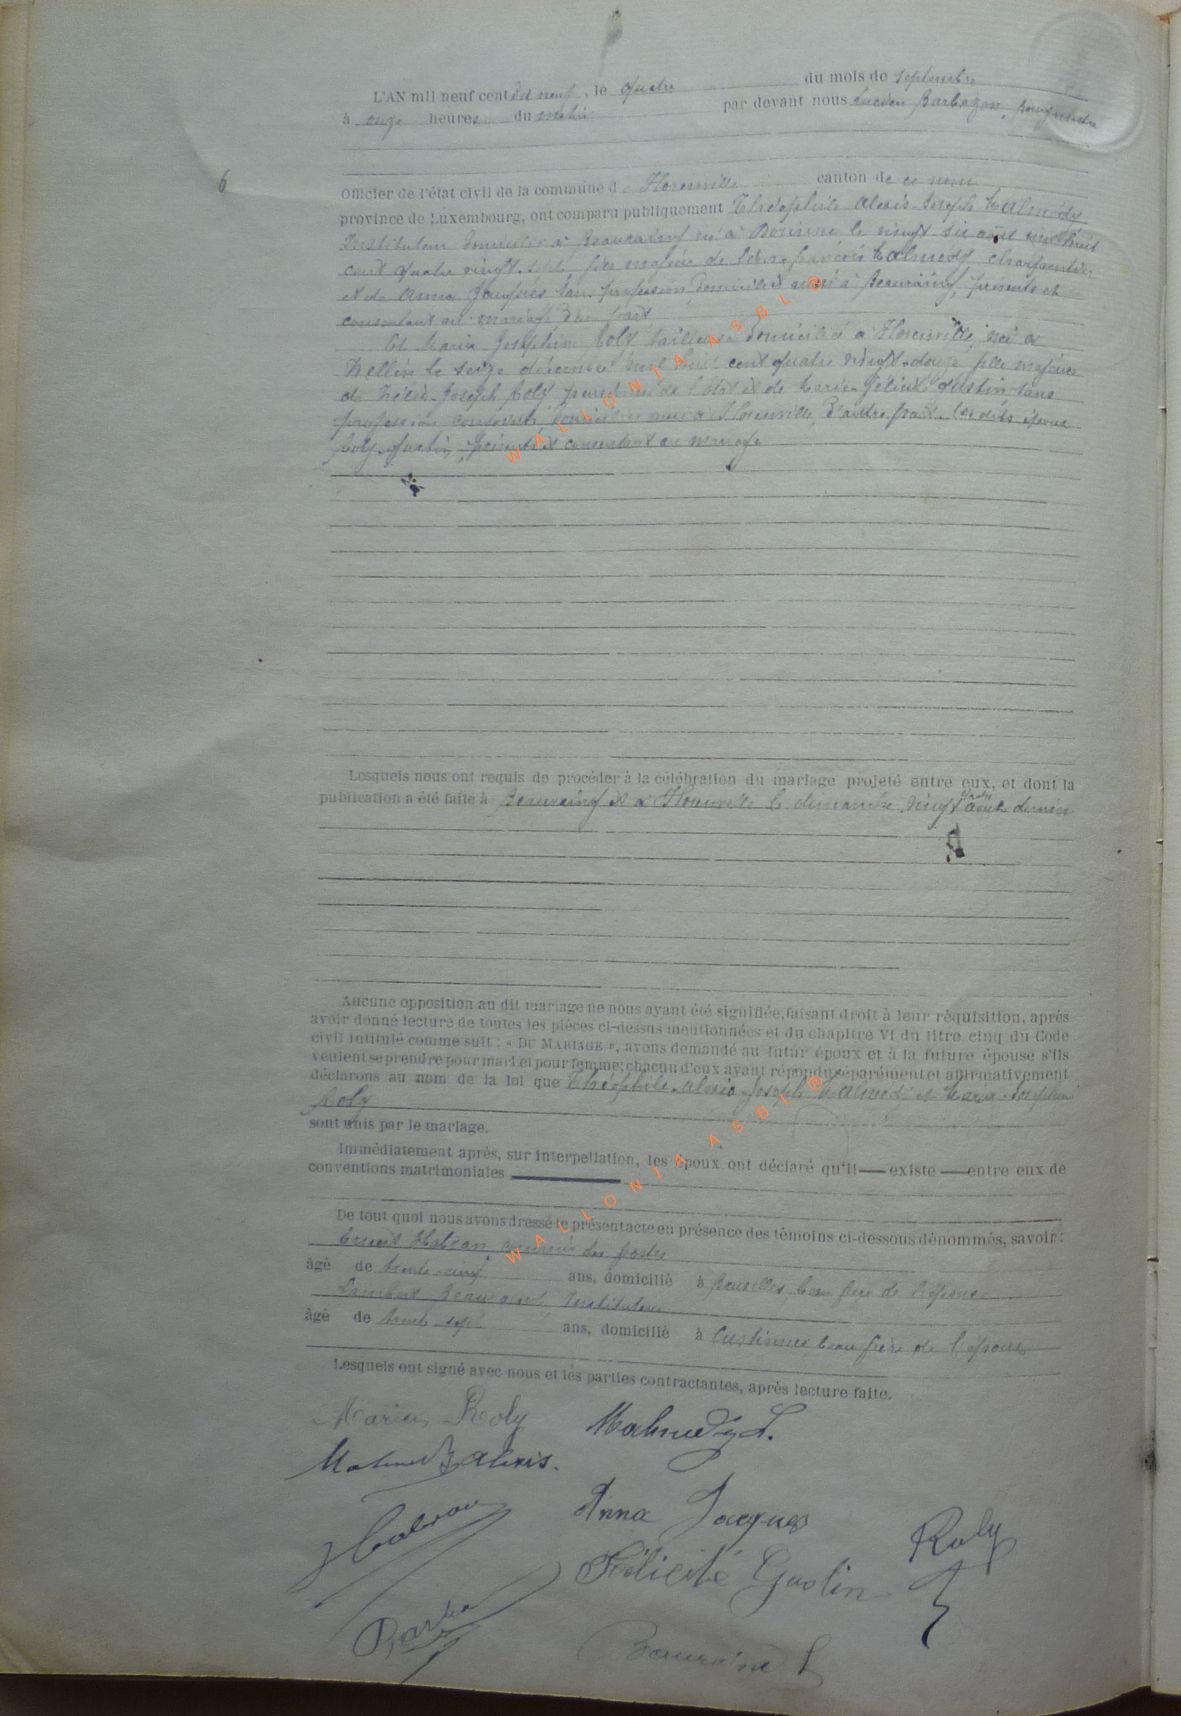 L'AN mil neuf cent dix neuf, le quatre du mois de septembre
à onze heures du matin par devant nous Lucien Barbazon, Bourgmestre
6
Officier de l'état civil de la commune de Florenville canton de ce nom
province de Luxembourg, ont comparu publiquement Théophile Alexis Joseph Malmedy
Instituteur domicilié à Beauraing né à Dorinne le vingt six août mil huit
cent quatre vingt-sept, fils majeur de François Malmedy charpentier
et de Anna Jacques sans profession, domiciliés à Beauraing, présents et
consentant au mariage d'une part
Et Maria Joséphine Roly tailleuse domiciliée à Florenville, née à
Wellin le seize décembre mil huit cent quatre vingt-douze, fille majeure
de Joseph Roly pensionné de l'état et de Marie-Félicité Gustin sans
profession conjoints, domiciliés à Florenville, d'autre part. Les dits époux
Roly-Gustin, présents et consentant au mariage
Lesquels nous ont requis de procéder à la célébration du mariage projeté entre eux, et dont la
publication a été faite à Beauraing et à Florenville le dimanche vingt août dernier
Aucune opposition au dit mariage ne nous ayant été signifiée, faisant droit à leur réquisition, après
avoir donné lecture de toutes les pièces ci-dessus mentionnées et du chapitre VI du titre cinq du Code
civil intitulé comme suit : « DU MARIAGE », avons demandé au futur époux et à la future épouse s'ils
veulent se prendre pour mari et pour femme; chacun d'eux ayant répondu séparément et affirmativement
déclarons au nom de la loi que Théophile-Alexis-Joseph Malmedy et Maria-Joséphine
Roly
sont unis par le mariage.
Immédiatement après, sur interpellation, les époux ont déclaré qu'il — existe — entre eux de
conventions matrimoniales
De tout quoi nous avons dressé le présent acte en présence des témoins ci-dessous dénommés, savoir :
Ernest Habran, commis des postes
âgé de trente-cinq ans, domicilié à Bruxelles, beau frère de l'épouse
Lambert Beauraind, Instituteur
âgé de trente-sept ans, domicilié à Custinne, beau frère de l'époux
Lesquels ont signé avec nous et les parties contractantes, après lecture faite.
Maria Roly Malmedy L.
Malmedy Alexis.
Habran Anna Jacques Roly
Félicité Gustin
Barba
WALLONIA ASBL ®
WALLONIA ASBL ®